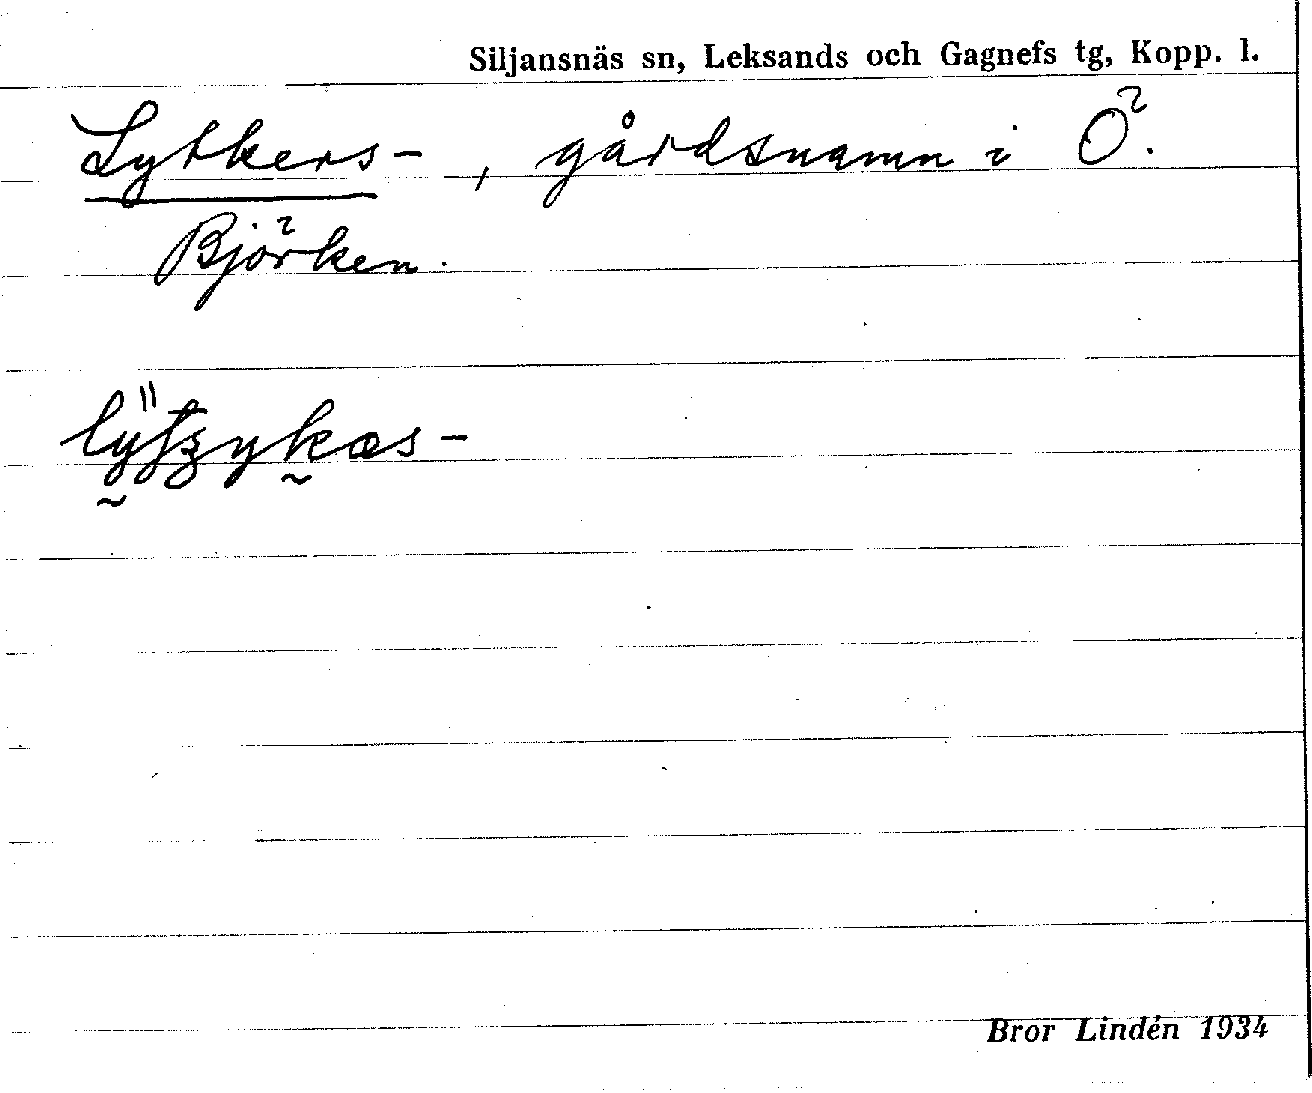 Siljansnäs sn, Leksands och Gagnefs tg, Kopp. l.
Lytkers-, gårdsnamn i Ö.
Björken.
Bror Lindén 1934